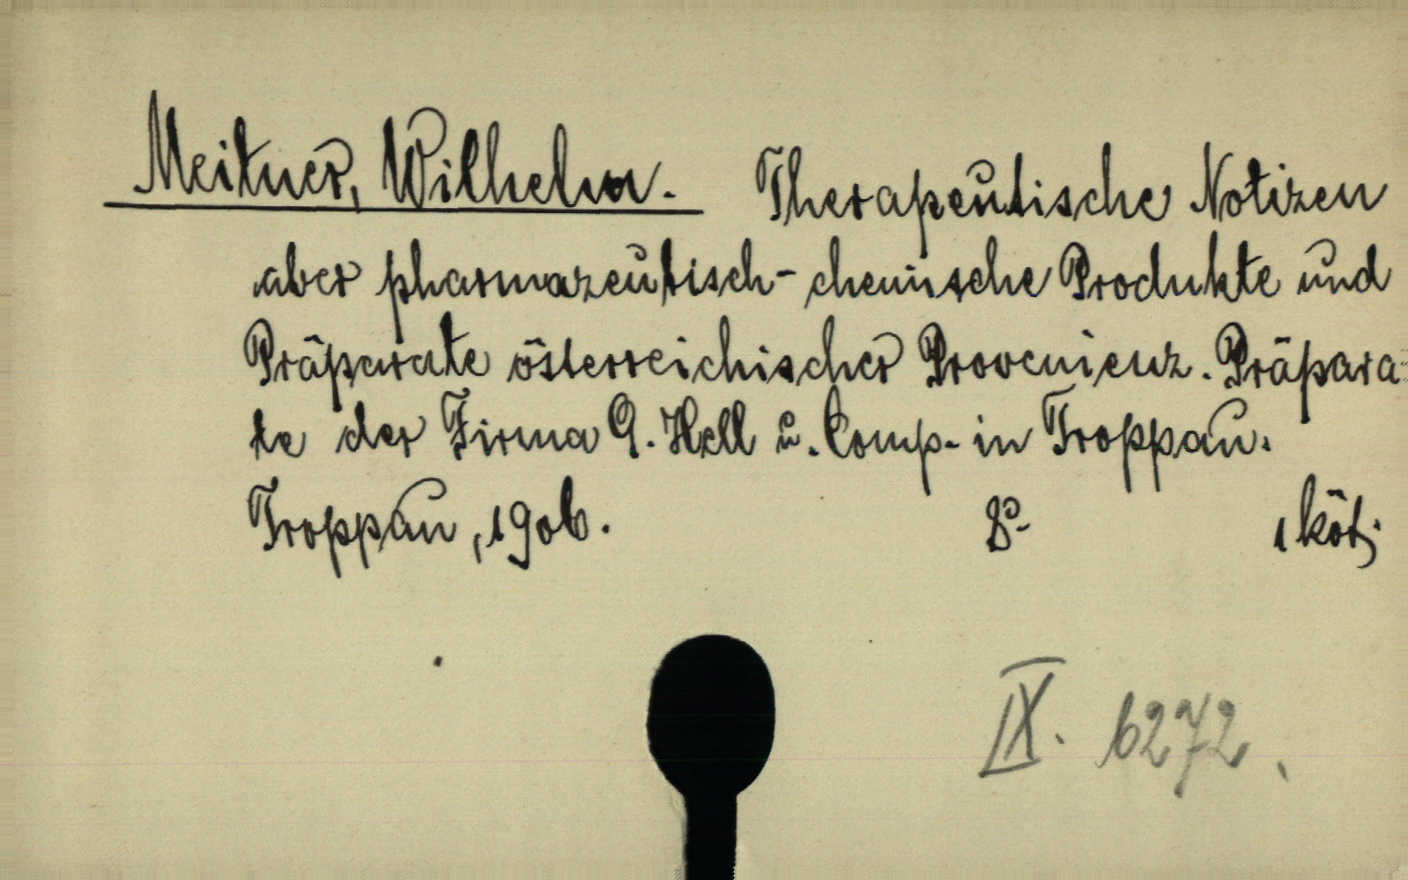 Meitner, Wilhelm. Therapeutische Notizen
über pharmazeutisch-chemische Produkte und
Präparate österreichischer Provenienz. Präpara-
te der Firma G. Hell u. Comp. in Troppau.
Troppau, 1906. 8° 1 köt.
IX. 6272.